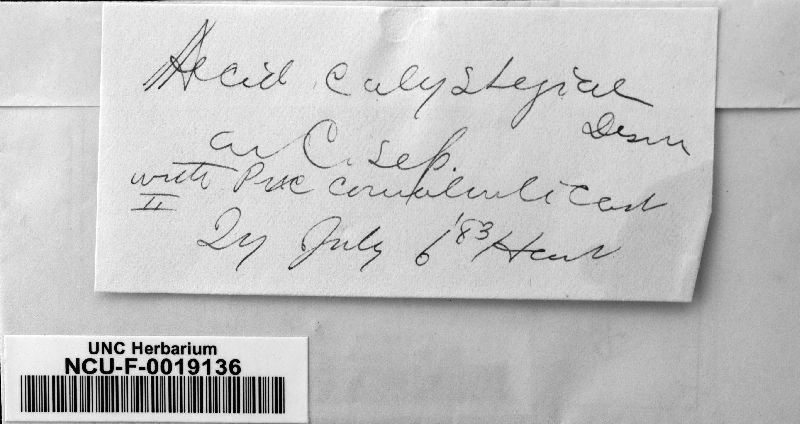 Aecid Calystegiae
Desm
on C. sep.
with Puc convolvuli Cast
II
July 6 '83
UNC Herbarium
NCU-F-0019136